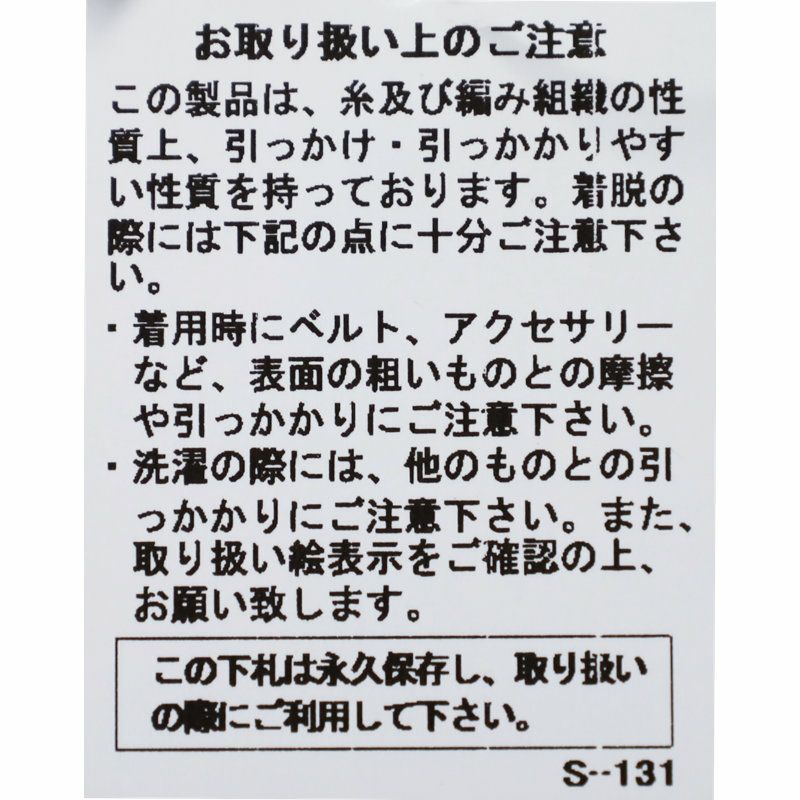 お取り扱い上のご注意
この製品は、糸及び編み組織の性
質上、引っかけ・引っかかりやす
い性質を持っております。着脱の
際には下記の点に十分ご注意下さ
い。
・着用時にベルト、アクセサリー
など、表面の粗いものとの摩擦
や引っかかりにご注意下さい。
・洗濯の際には、他のものとの引
っかかりにご注意下さい。また、
取り扱い絵表示をご確認の上、
お願い致します。
この下札は永久保存し、取り扱い
の際にご利用して下さい。
S--131